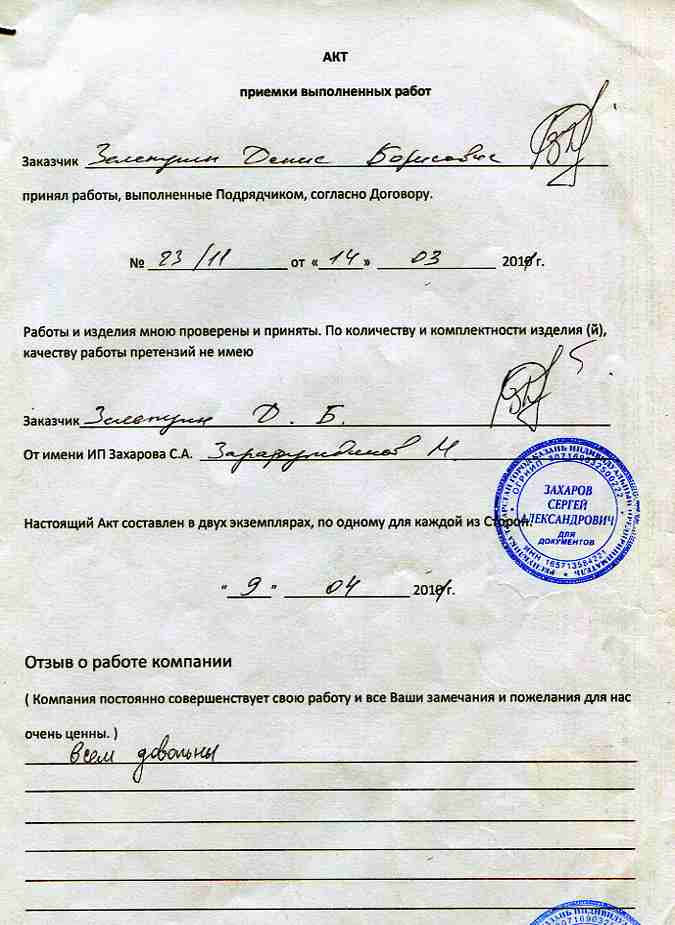 АКТ
приемки выполненных работ
Заказчик Зелепугин Денис Борисович
принял работы, выполненные Подрядчиком, согласно Договору.
№ 23/11 от «14» 03 2011 г.
Работы и изделия мною проверены и приняты. По количеству и комплектности изделия (й),
качеству работы претензий не имею
Заказчик Зелепугин Д. Б.
От имени ИП Захарова С.А. М.
Настоящий Акт составлен в двух экземплярах, по одному для каждой из Сторон.
"9" 04 2011 г.
РЕСПУБЛИКА ТАТАРСТАН ГОРОД КАЗАНЬ ИНДИВИДУАЛЬНЫЙ ПРЕДПРИНИМАТЕЛЬ
ЗАХАРОВ
СЕРГЕЙ
АЛЕКСАНДРОВИЧ
ДЛЯ
ДОКУМЕНТОВ
Отзыв о работе компании
( Компания постоянно совершенствует свою работу и все Ваши замечания и пожелания для нас
очень ценны. )
всем довольны